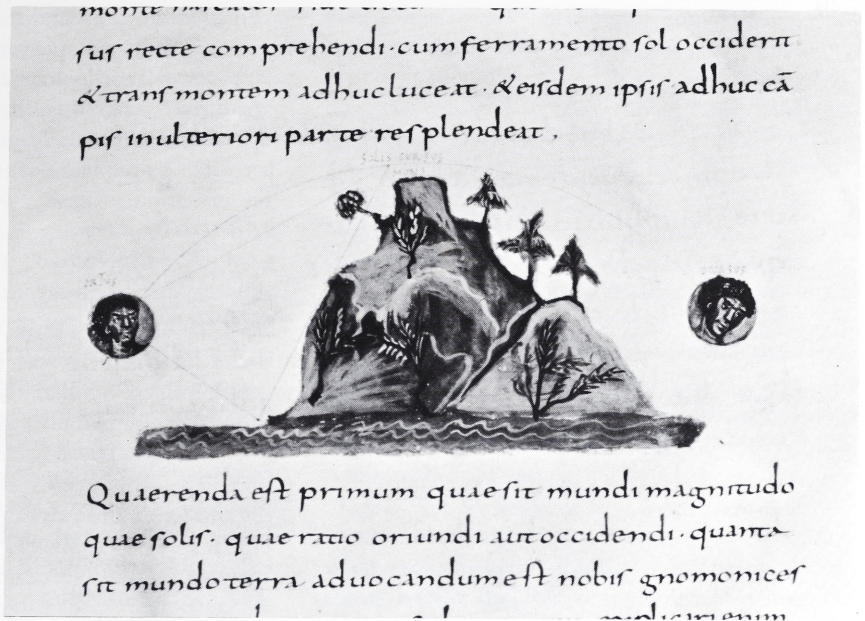 sus recte comprehendi · cum ferramento sol occiderit
& trans montem adhuc luceat · & eisdem ipsis adhuc cā
pis in ulteriori parte resplendeat .
solis cursus
ortus
occasus
Quaerenda est primum quae sit mundi magnitudo
quae solis · quae ratio oriundi aut occidendi · quanta
sit mundo terra advocandum est nobis gnomonices